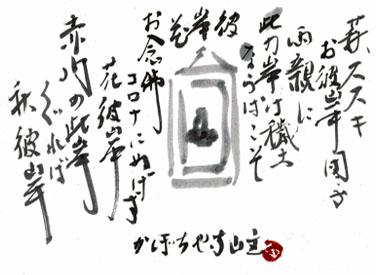 萩ススキ
お彼岸団子
両親に
此の岸は穢土
なればこそ
彼岸花
お念佛
コロナにめげず
花彼岸
赤門の此岸
くぐれば
秋彼岸
かぼちゃ寺山主